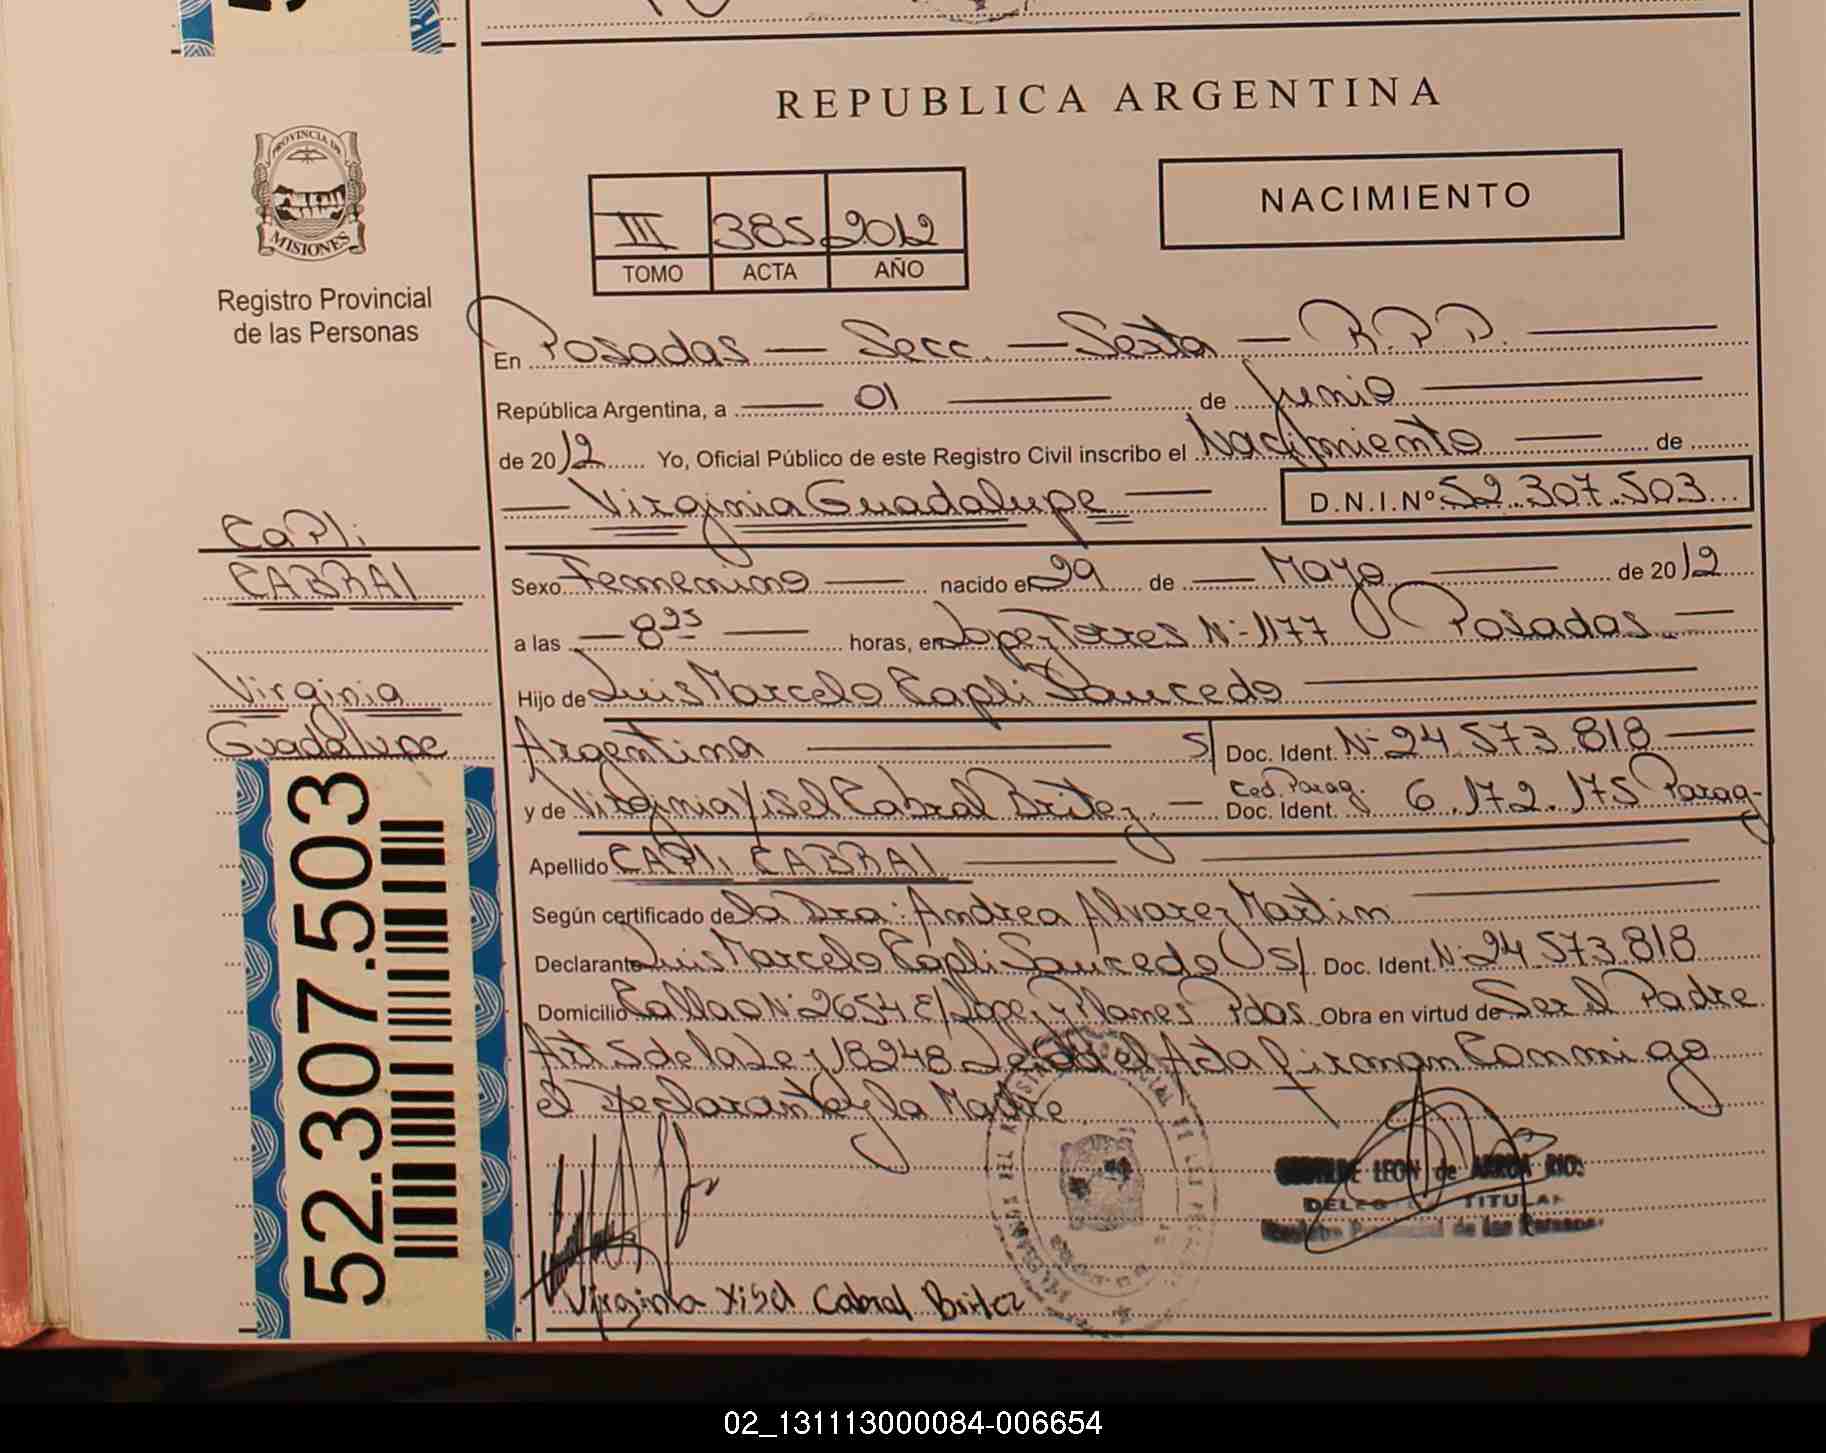 REPUBLICA ARGENTINA
PROVINCIA DE
MISIONES
Registro Provincial
de las Personas
III 385 2012
TOMO ACTA AÑO
NACIMIENTO
En Posadas — Secc. — Sexta — R.P.P.
República Argentina, a — 01 — de Junio
de 2012 Yo, Oficial Público de este Registro Civil inscribo el Nacimiento — de
— Virginia Guadalupe — D.N.I.Nº 52.307.503
CaPli
CABRAl
Virginia
Guadalupe
52.307.503
Sexo Femenino — nacido en 29 de — Mayo — de 2012
a las — 8 25 — horas, en Lopez Torres Nº 1177 Posadas. —
Hijo de Luis Marcelo Capli Saucedo
Argentina — S/ Doc. Ident. Nº 24.573.818 —
y de Virginia Yisel Cabral Britez. — Ced. Parag. Doc. Ident. 6.172.175 Parag-
Apellido CAPli CABRAl
Según certificado de la Dra: Andrea Alvarez Martin
Declarante Luis Marcelo Capli Saucedo S/ Doc. Ident. Nº 24.573.818
Domicilio Callao Nº 2654 E/ Lopez y Planes Pdas. Obra en virtud de Ser el Padre
Art 5 de la Ley 18248 Leida el Acta firman Conmigo
el Declarante y la Madre
LEON de
TITULAR
Registro Provincial de las Personas
Virginia Yisel Cabral Britez
02_131113000084-006654